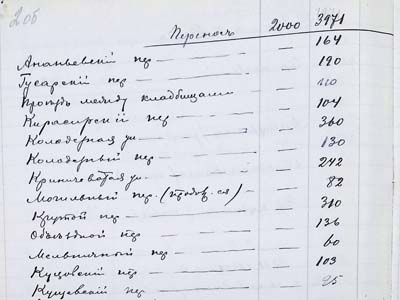 2 об
Переносъ 2000 3971
Ананьевскій пер — — 164
Гусарскій пер — — 120
Проѣздъ между кладбищами — 110
Кирасирскій пер — — 104
Колодезная ул — — 360
Колодезный пер — — 130
Криничеватая ул — — 242
Могильный пер. (продов-ся) — 82
Крутой пер — — 310
Объѣздной пер — — 136
Мельничный пер — — 60
Куцовскій пер — — 103
Кущевскій пер — — 25